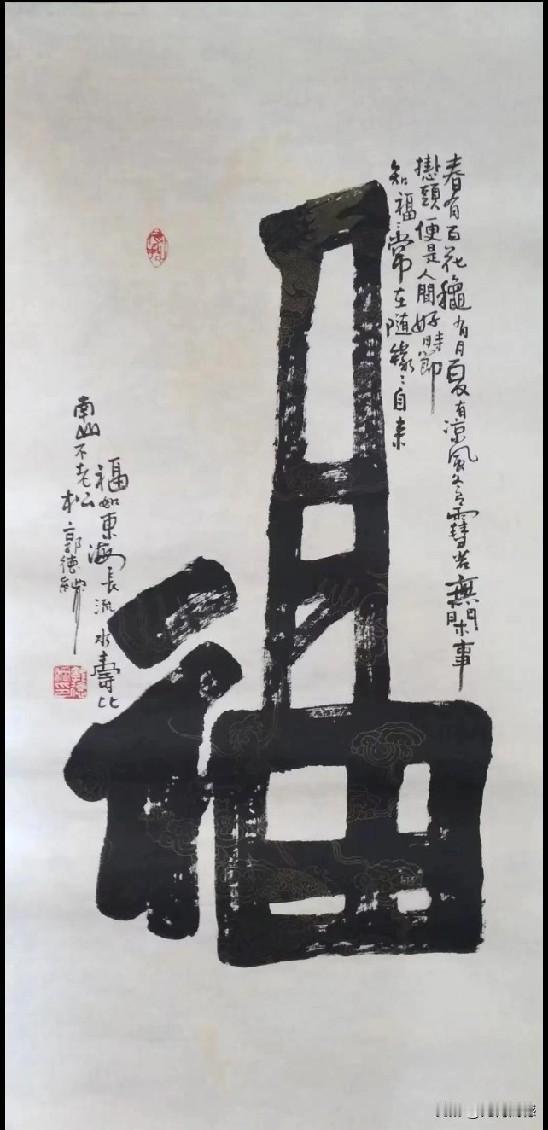 春有百花龝有月夏有凉风冬有雪若無閒事
挂心頭便是人間好時節
知福〻常在隨緣〻自来
福
福如東海長流水壽比
南山不老松 郭德纲